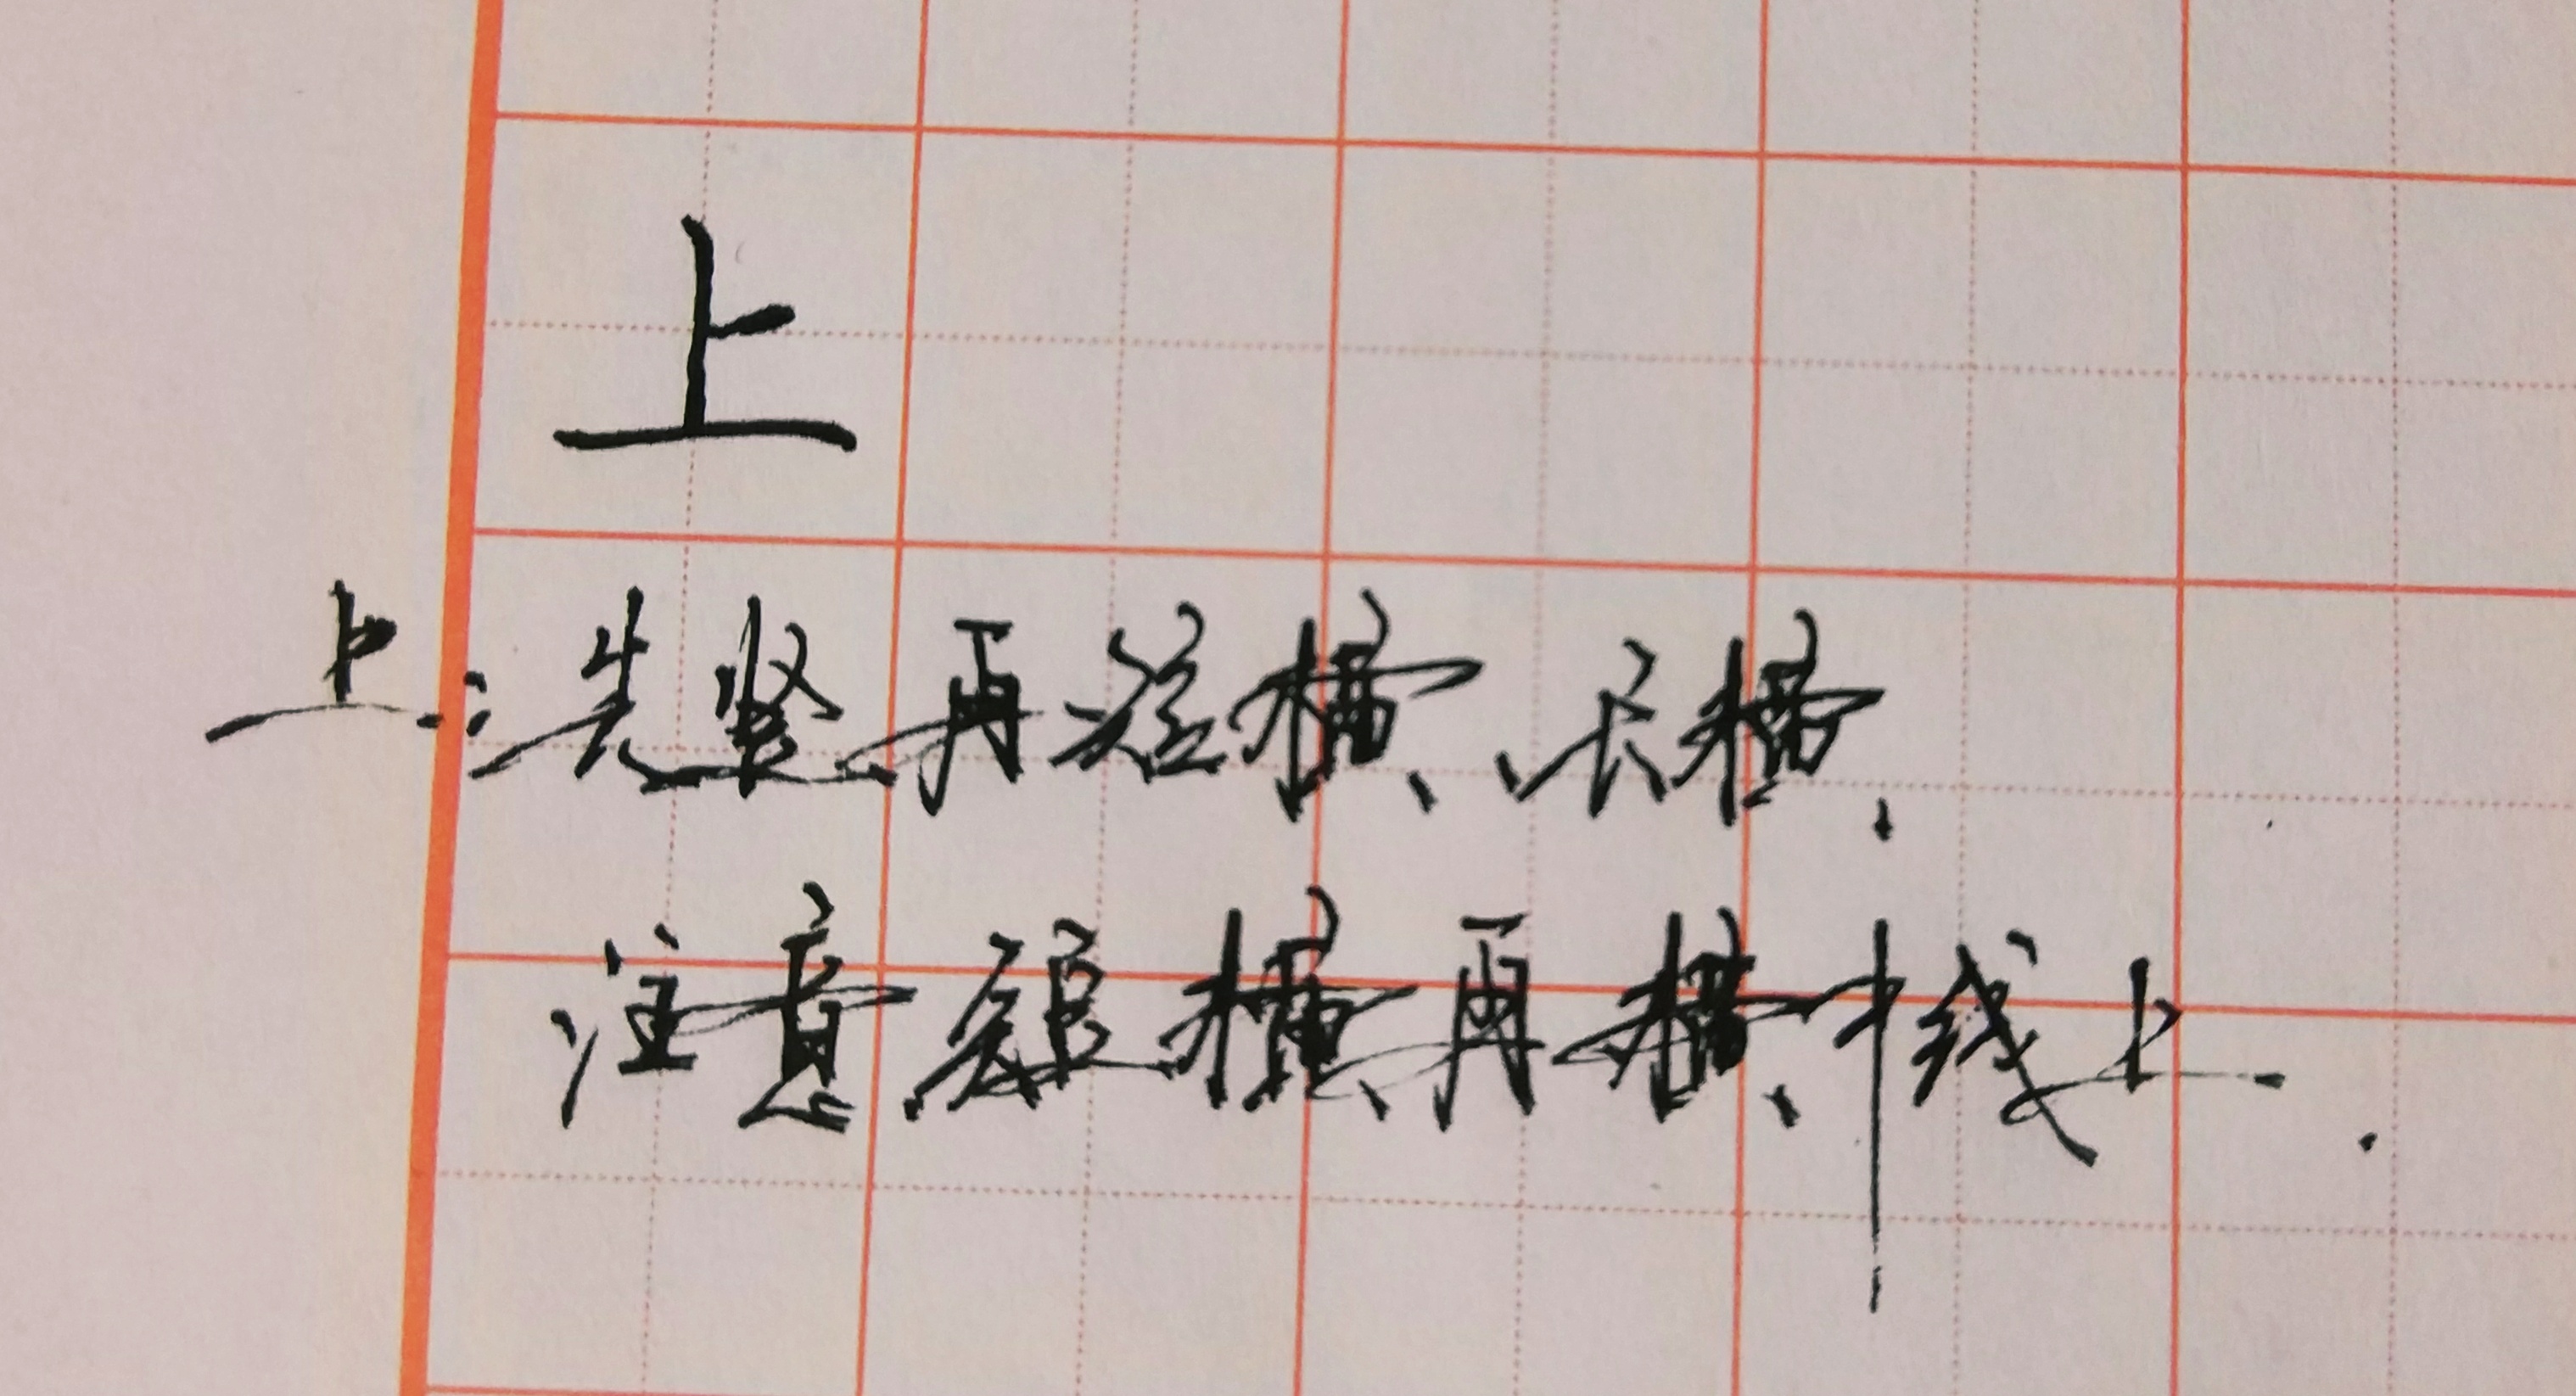 上
上:先竖再短横、长横、
注意短横再横中线上.